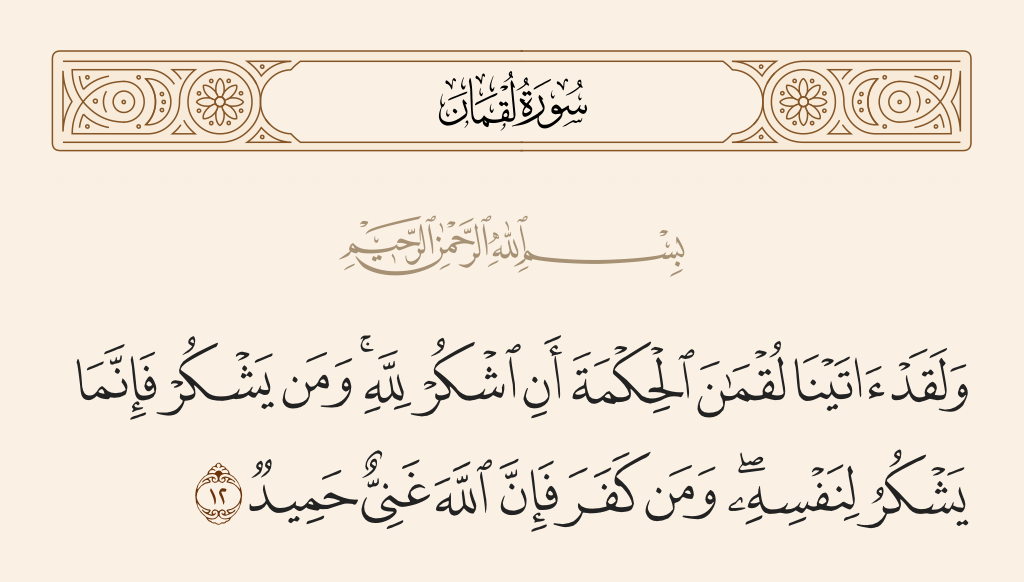 سُورَةُ لُقْمَانَ
بِسْمِ ٱللَّهِ ٱلرَّحْمَٰنِ ٱلرَّحِيمِ
وَلَقَدْ ءَاتَيْنَا لُقْمَٰنَ ٱلْحِكْمَةَ أَنِ ٱشْكُرْ لِلَّهِ ۚ وَمَن يَشْكُرْ فَإِنَّمَا
يَشْكُرُ لِنَفْسِهِۦ ۖ وَمَن كَفَرَ فَإِنَّ ٱللَّهَ غَنِىٌّ حَمِيدٌ ١٢